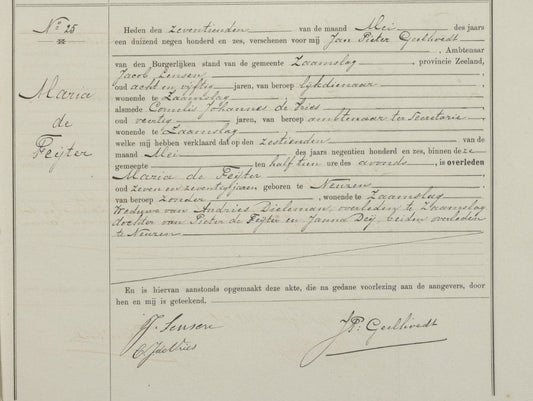 No 25
Maria
de
Feijter
Heden den zeventienden van de maand Mei des jaars
een duizend negen honderd en zes, verschenen voor mij Jan Pieter Geelhoedt
Ambtenaar
van den Burgerlijken stand van de gemeente Zaamslag, provincie Zeeland,
Jacob Lensen
oud acht en vijftig jaren, van beroep lijkdienaar
wonende te Zaamslag
alsmede Cornelis Johannes de Vries
oud veertig jaren, van beroep ambtenaar ter Secretarie
wonende te Zaamslag
welke mij hebben verklaard dat op den zestienden van de
maand Mei des jaars negentien honderd en zes, binnen deze
gemeente ten half tien ure des avonds, is overleden
Maria de Feijter
oud zeven en zeventig jaren, geboren te Neuzen
van beroep zonder, wonende te Zaamslag
weduwe van Andries Dieleman, overleden te Zaamslag
dochter van Pieter de Feijter en Janna Dey, beiden overleden
te Neuzen
En is hiervan aanstonds opgemaakt deze akte, die na gedane voorlezing aan de aangevers, door
hen en mij is geteekend.
J. Lensen
JP: Geelhoedt
C J de Vries